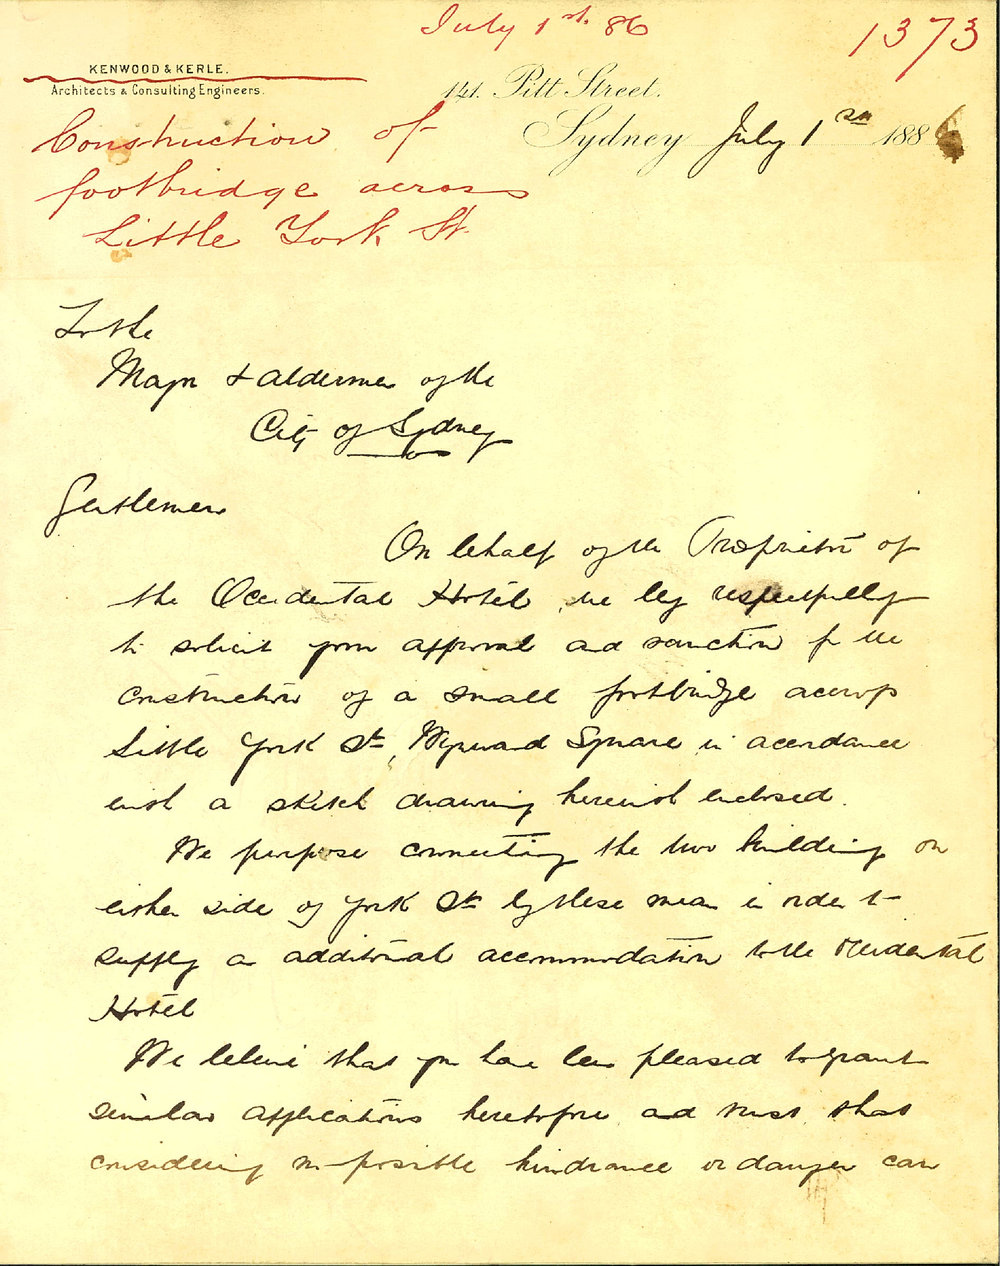 July 1st. 86
1373
KENWOOD & KERLE.
Architects & Consulting Engineers.
141. Pitt Street.
Sydney July 1st 1886
Construction of
footbridge across
Little York St.
To the
Mayor & Aldermen of the
City of Sydney
Gentlemen
On behalf of the Proprietor of
the Occidental Hotel, we beg respectfully
to solicit your approval and sanction for the
construction of a small footbridge across
Little York St, Wynyard Square, in accordance
with a sketch drawing herewith enclosed.
We purpose connecting the two building on
either side of York St by these means in order to
supply an additional accommodation to the Occidental
Hotel
We believe that you have been pleased to grant
similar applications heretofore and trust that
considering no possible hindrance or danger can